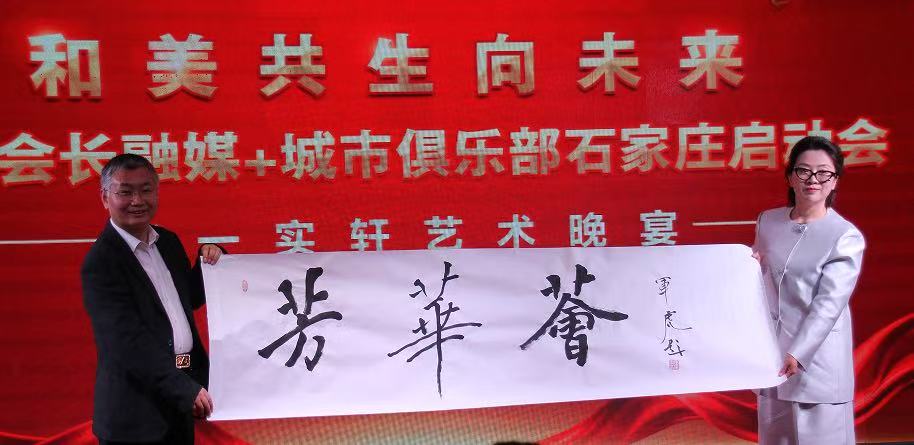 和美共生向未来
会长融媒+城市俱乐部石家庄启动会
一实轩艺术晚宴
芳華薈
軍虎題